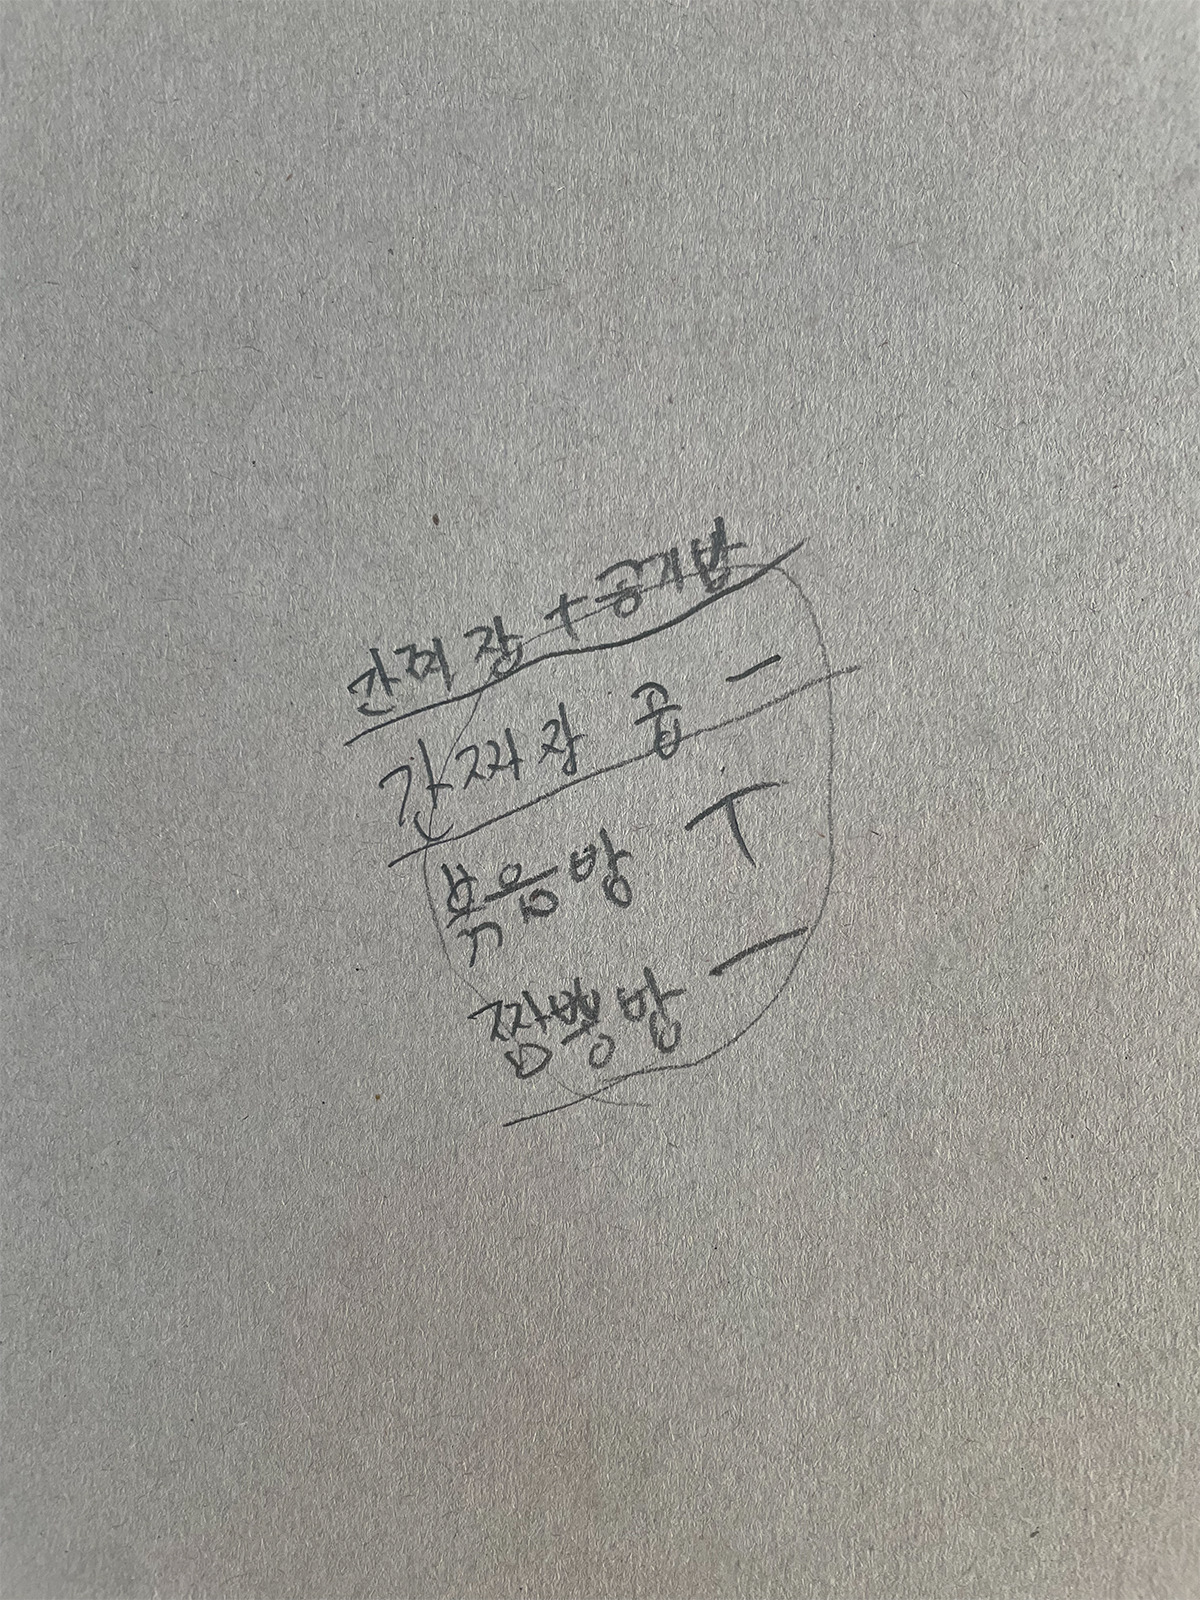 간짜장 + 공기밥
간짜장 곱 一
볶음밥 丅
짬뽕밥 一